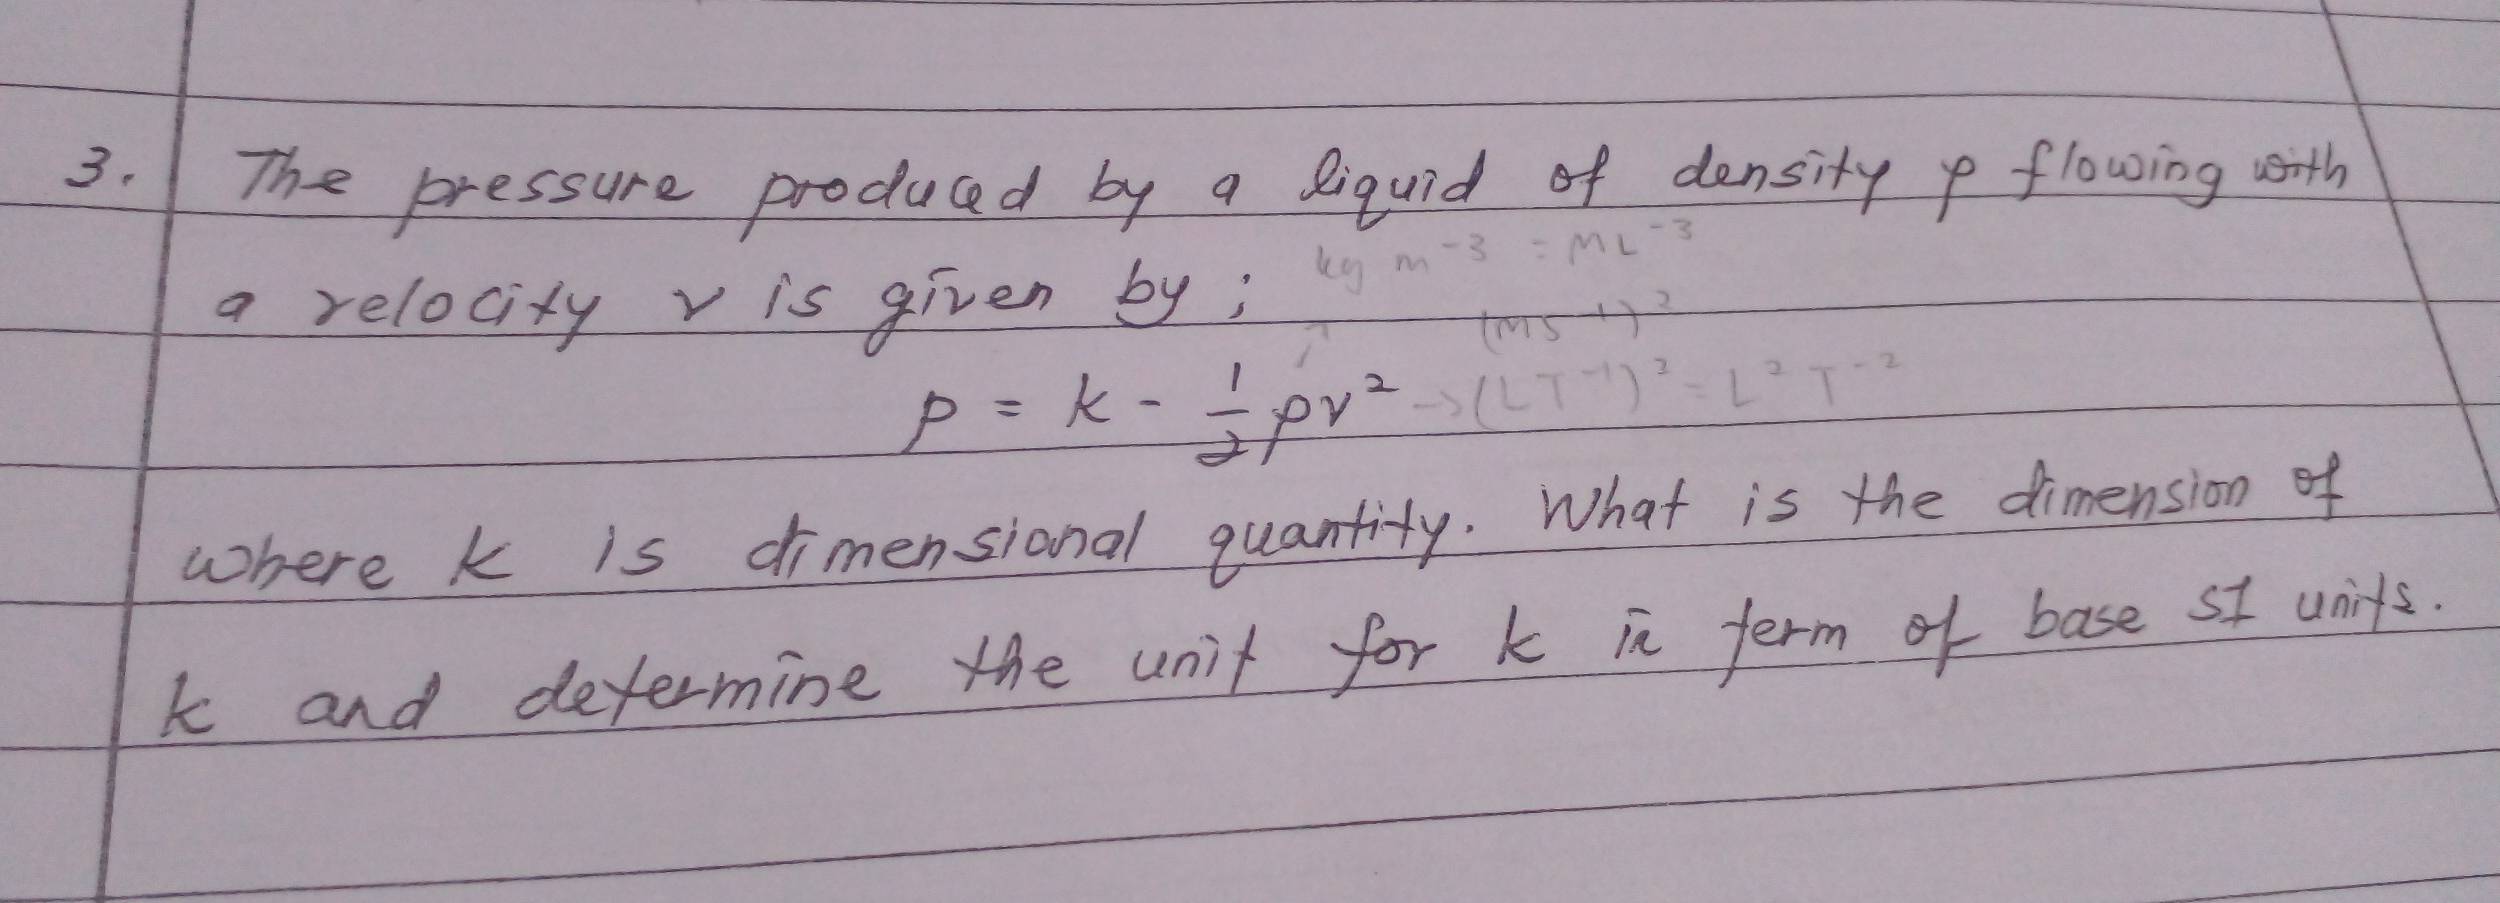 3. The pressure produced by a liquid of density ρ flowing with
kg m⁻³ = ML⁻³
a velocity v is given by ;
(ms⁻¹)²
p = k - 1/2 ρv² → (LT⁻¹)² = L²T⁻²
where k is dimensional quantity. What is the dimension of
k and determine the unit for k in term of base SI units.